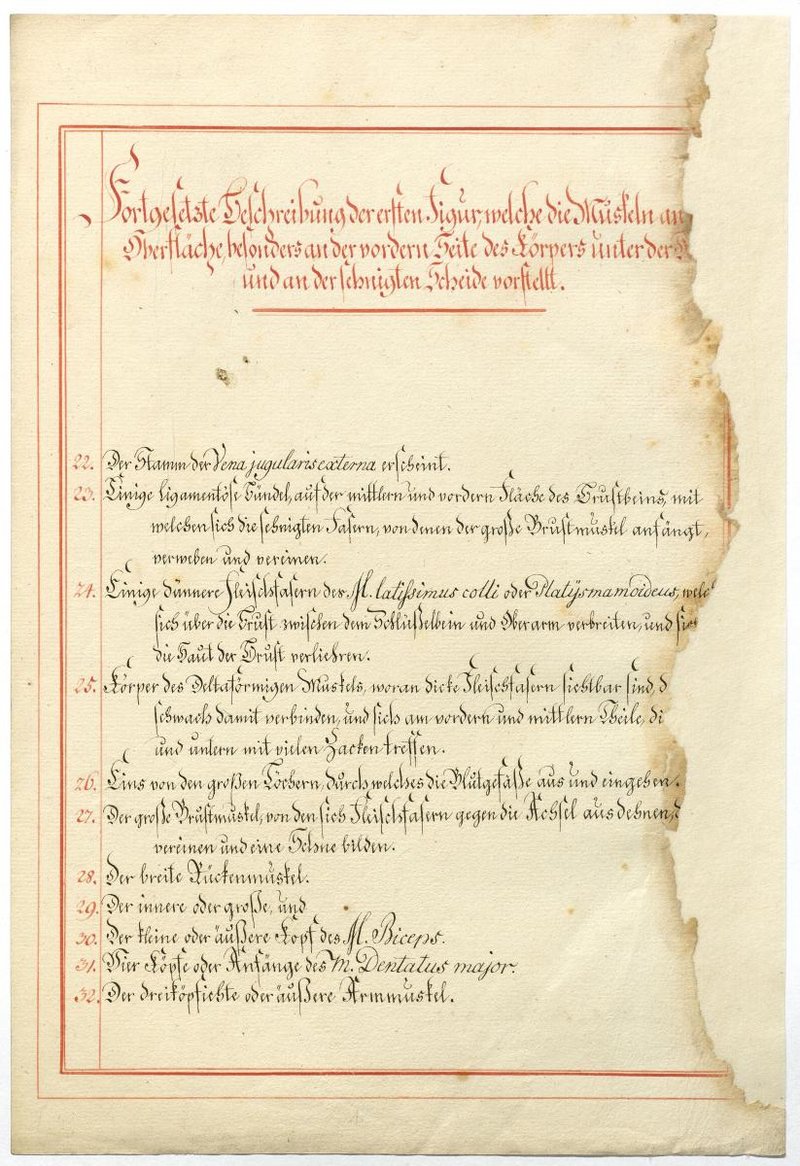 Fortgesetzte Beschreibung der ersten Figur, welche die Muskeln an
Oberfläche, besonders an der vordern Seite des Körpers unter der
und an der sehnigten Scheide vorstellt.
22. Der Stamm der Vena jugularis externa erscheint.
23. Einige ligamentöse Bündel, auf der mittlern und vordern Fläche des Brustbeins, mit
welchen sich die sehnigten Fasern, von denen der große Brustmuskel anfängt,
verweben und vereinen.
24. Einige dünnere Fleischfasern des M. latissimus colli oder Platysmamoideus, welc
sich über die Brust zwischen dem Schlüßelbein und Oberarm verbreiten, und sic
die Haut der Brust verliehren.
25. Körper des Deltaförmigen Muskels, woran dicke Fleischfasern sichtbar sind, d
schwach damit verbinden, und sich am vordern und mittlern Theile, di
und untern mit vielen Zacken treffen.
26. Eins von den großen Löchern, durch welches die Blutgefäße aus und eingehen.
27. Der große Brustmuskel, von den sich Fleischfasern gegen die Achsel ausdehnen,
vereinen und eine Sehne bilden.
28. Der breite Rückenmuskel.
29. Der innere oder große, und
30. Der kleine oder äußere Kopf des M. Biceps.
31. Vier Köpfe oder Anfänge des m. Dentatus major.
32. Der dreiköpfichte oder äußere Armmuskel.